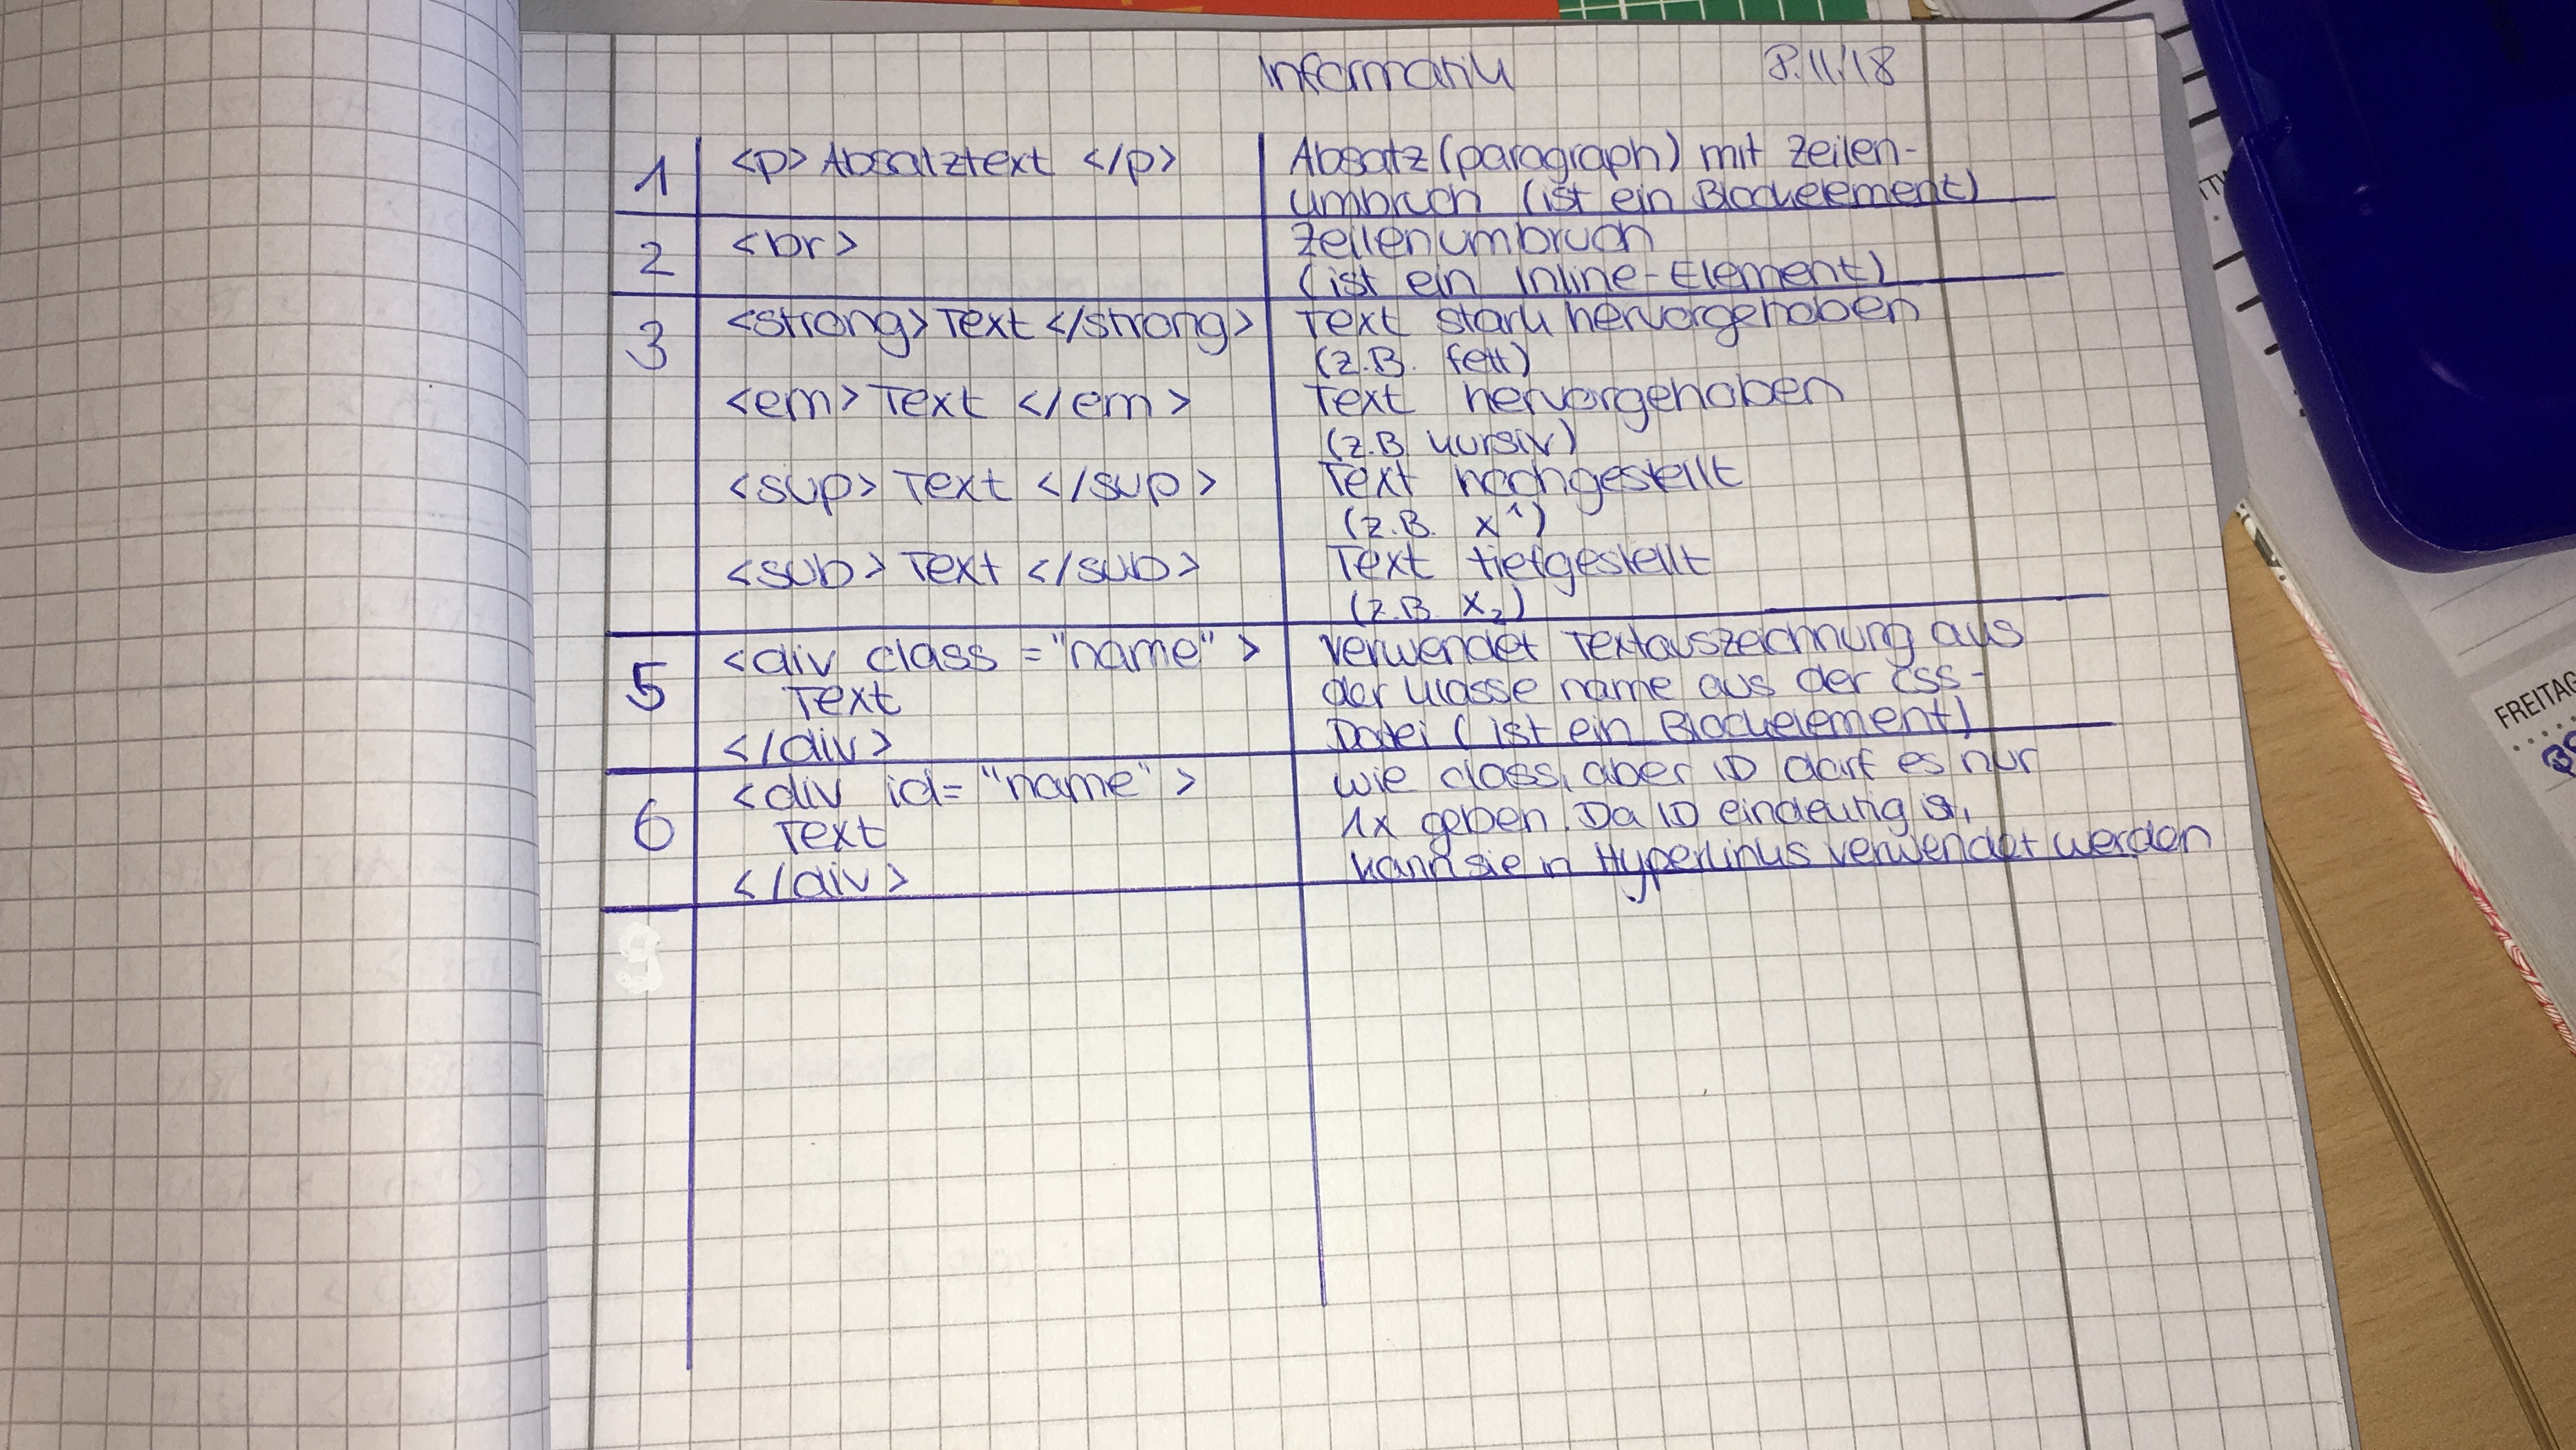 Informatik 8.11.'18
1 <p> Absatztext </p> Absatz (paragraph) mit Zeilen-
umbruch (ist ein Blockelement)
2 <br> Zeilenumbruch
(ist ein Inline-Element)
3 <strong> Text </strong> Text stark hervorgehoben
(z.B. fett)
<em> Text </em> Text hervorgehoben
(z.B. kursiv)
<sup> Text </sup> Text hochgestellt
(z.B. x¹)
<sub> Text </sub> Text tiefgestellt
(z.B. x₂)
5 <div class = "name" > verwendet Textauszeichnung aus
Text der Klasse name aus der CSS-
</div> Datei (ist ein Blockelement)
6 <div id= "name" > wie class, aber ID darf es nur
Text 1x geben. Da ID eindeutig ist,
</div> kann sie in Hyperlinks verwendet werden
FREITAG